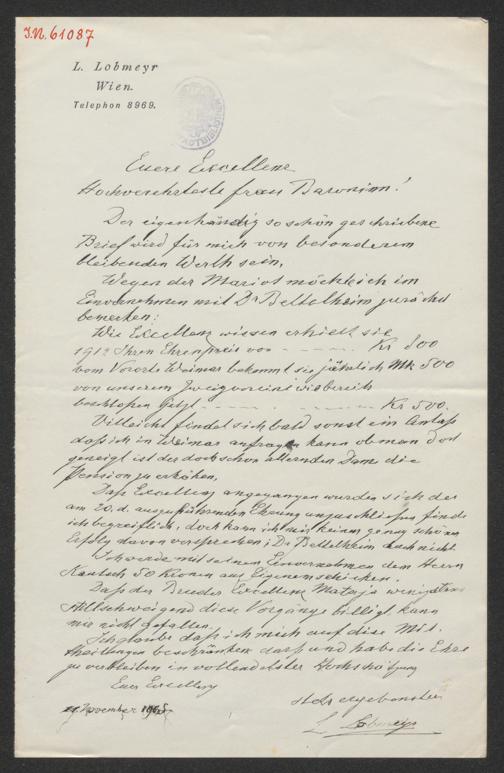 I.N. 61087
L. Lobmeyr
Wien.
Telephon 8969.
Euere Excellenz
Hochverehrteste Frau Baronin!
Der eigenhändig so schön geschriebene
Brief wird für mich von besonderem
bleibenden Werth sein.
Wegen der Mariot möchte ich im
Einvernehmen mit Dr Bettelheim zunächst
bemerken:
Wie Excellenz wissen erhielt sie
1912 Ihren Ehrenpreis von - - - - Kr 800
vom Vororte Weimar bekommt sie jährlich Mk 500
von unserem Zweigvereine wie bereits
beschlossen jetzt - - - - - - Kr 500.
Villeicht findet sich bald sonst ein Anlaß
daß ich in Weimar anfragen kann ob man dort
geneigt ist der doch schon alternden Dame die
Pension zu erhöhen.
Daß Excellenz angegangen wurden sich der
am 20. d. auszuführenden Ehrung anzuschließen finde
ich begreiflich; doch kann ich mir keinen genug schönen
Erfolg davon versprechen; Dr Bettelheim auch nicht.
Ich werde mit seinem Einvernehmen dem Herrn
Kautsch 50 Kronen aus Eigenem schicken.
Daß der Bruder Excellenz Mataja wenigstens
stillschweigend diese Vorgänge billigt kann
mir nicht gefallen.
Ich glaube daß ich mich auf diese Mit-
theilungen beschränken darf und habe die Ehre
zu verbleiben in vollendetster Hochschätzung
Euer Excellenz
stets ergebenster
November
L Lobmeyr